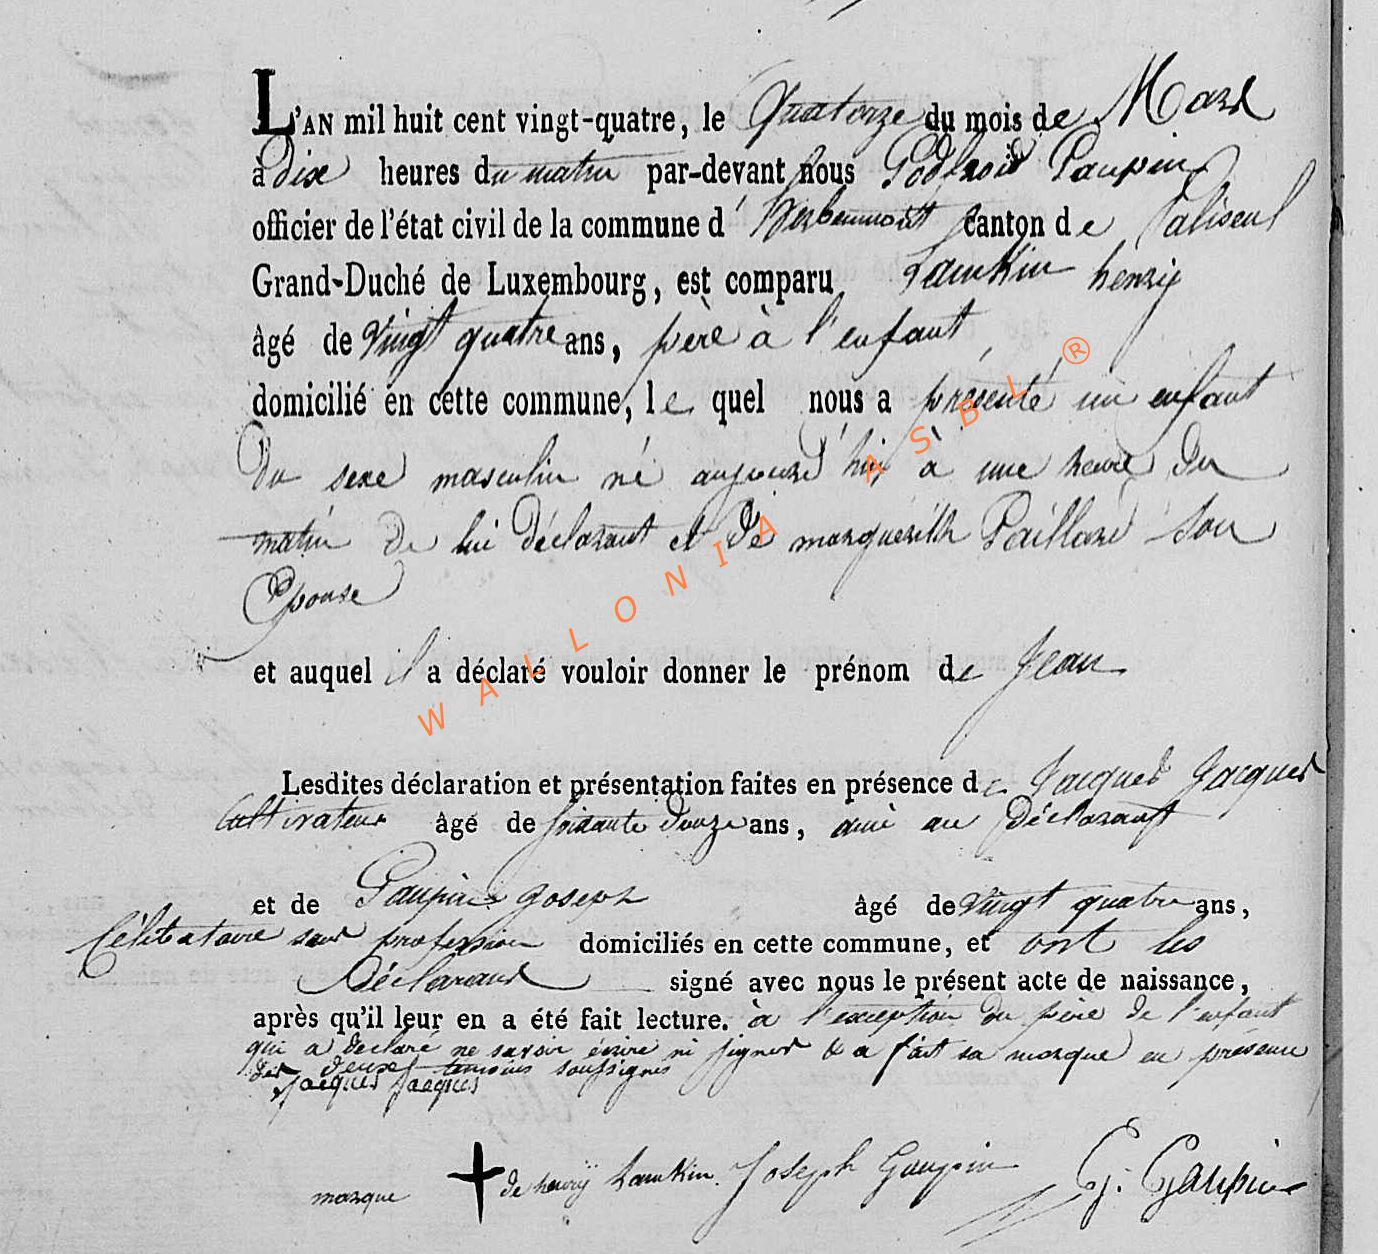 L'AN mil huit cent vingt-quatre, le Quatorze du mois de Mars
à dix heures du matin par-devant nous Godfroid Gaupin
officier de l'état civil de la commune d'herbeumont canton de Paliseul
Grand-Duché de Luxembourg, est comparu Lamkin henrij
âgé de vingt quatre ans, père à l'enfant
domicilié en cette commune, le quel nous a présenté un enfant
Du sexe masculin né aujourd'hui à une heure du
matin de lui déclarant et de Paillard son
Epouse
et auquel il a déclaré vouloir donner le prénom de Jean
Lesdites déclaration et présentation faites en présence de Jacques Jacques
Cultivateur âgé de soixante Douze ans, ami au Déclarant
et de Gaupin joseph âgé de vingt quatre ans,
Célibataire sans profession domiciliés en cette commune, et ont les
Déclarans signé avec nous le présent acte de naissance,
après qu'il leur en a été fait lecture. à l'exception du père de l'enfant
qui a declaré ne savoir écrire ni signer & a fait sa marque en présence
des deux temoins soussignés
Jacques Jacques
marque de henrÿ Lamkin. Joseph Gaupin G. Gaupin
WALLONIA ASBL ®